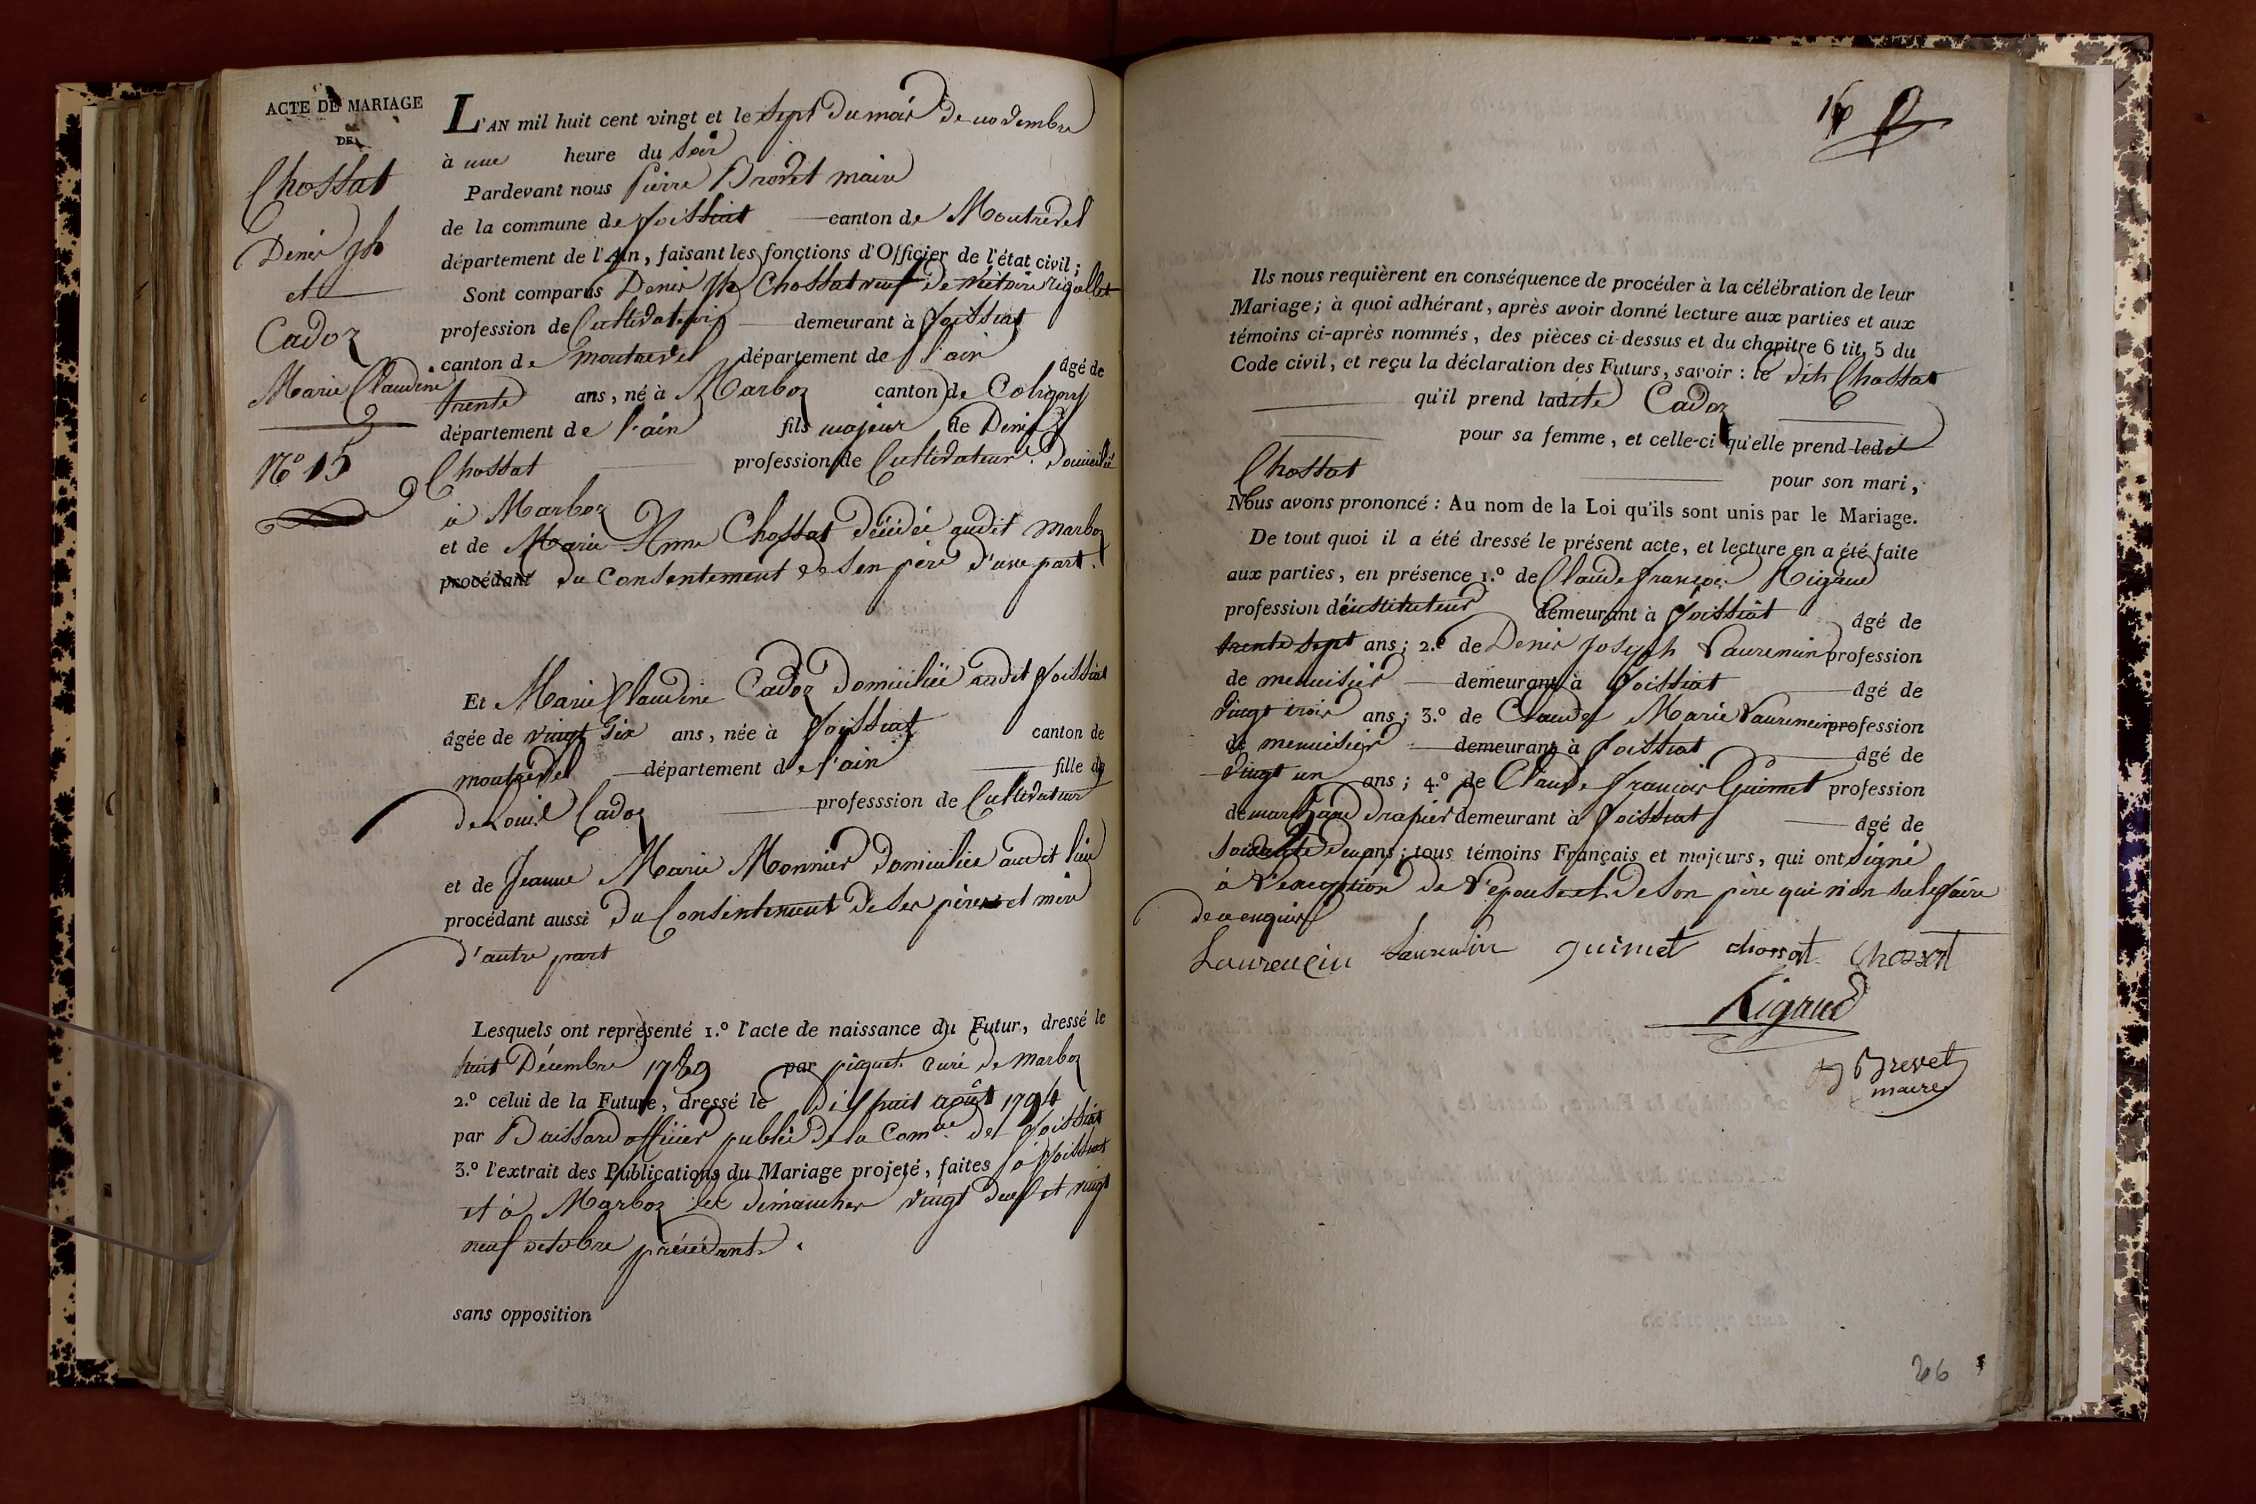 ACTE DE MARIAGE
DE
Chossat
Denis Jph
et
Cadoz
Marie Claudine
N° 15
L'AN mil huit cent vingt et le sept du mois de novembre
à une heure du soir
Pardevant nous Pierre Brevet maire
de la commune de foissiat canton de Montrevel
département de l'Ain, faisant les fonctions d'Officier de l'état civil;
Sont comparus Denis Jph Chossat veuf de
profession de Cultivateur demeurant à foissiat
canton de montrevel département de l'ain âgé de
trente ans, né à Marboz canton de Coligny
département de l'ain fils majeur de Denis
Chossat profession de Cultivateur Domicilié
à Marboz
et de Marie Anne Chossat décédée audit marboz
procédant du Consentement de Son père d'une part.
Et Marie Claudine Cadoz Domiciliée audit foissiat
âgée de vingt Six ans, née à foissiat canton de
montrevel département de l'ain fille
de Louis Cadoz professsion de Cultivateur
et de Jeanne Marie Monnier Domiciliée audit lieu
procédant aussi du Consentement de Ses père et mère
d'autre part
Lesquels ont représenté 1.° l'acte de naissance du Futur, dressé le
huit Décembre 1789 par piquet curé de marboz
2.° celui de la Future, dressé le dix huit août 1794
par Buissard officier public De la Com.ne de foissiat
3.° l'extrait des Publications du Mariage projeté, faites à foissiat
et à Marboz les dimanches vingt deux et vingt
neuf octobre précédents.
sans opposition
16
Ils nous requièrent en conséquence de procéder à la célébration de leur
Mariage; à quoi adhérant, après avoir donné lecture aux parties et aux
témoins ci-après nommés, des pièces ci-dessus et du chapitre 6 tit. 5 du
Code civil, et reçu la déclaration des Futurs, savoir: le dit Chossat
qu'il prend ladite Cadoz
pour sa femme, et celle-ci qu'elle prend ledit
Chossat pour son mari,
Nous avons prononcé: Au nom de la Loi qu'ils sont unis par le Mariage.
De tout quoi il a été dressé le présent acte, et lecture en a été faite
aux parties, en présence 1.° de Claude françois Rigaud
profession d'instituteur demeurant à foissiat âgé de
trente sept ans; 2.° de Denis Joseph Laurencin profession
de menuisier demeurant à foissiat âgé de
vingt trois ans; 3.° de Claude Marie Laurencin profession
de menuisier demeurant à foissiat âgé de
vingt un ans; 4.° de Claude françois Guimet profession
de marchand drapier demeurant à foissiat âgé de
soixante deux ans; tous témoins Français et majeurs, qui ont signé
à l'exception de l'épouse et de Son père qui n'on su le faire
de ce enquis
Laurencin Laurencin guimet chossat Chossat
Rigaud
Brevet
maire
26